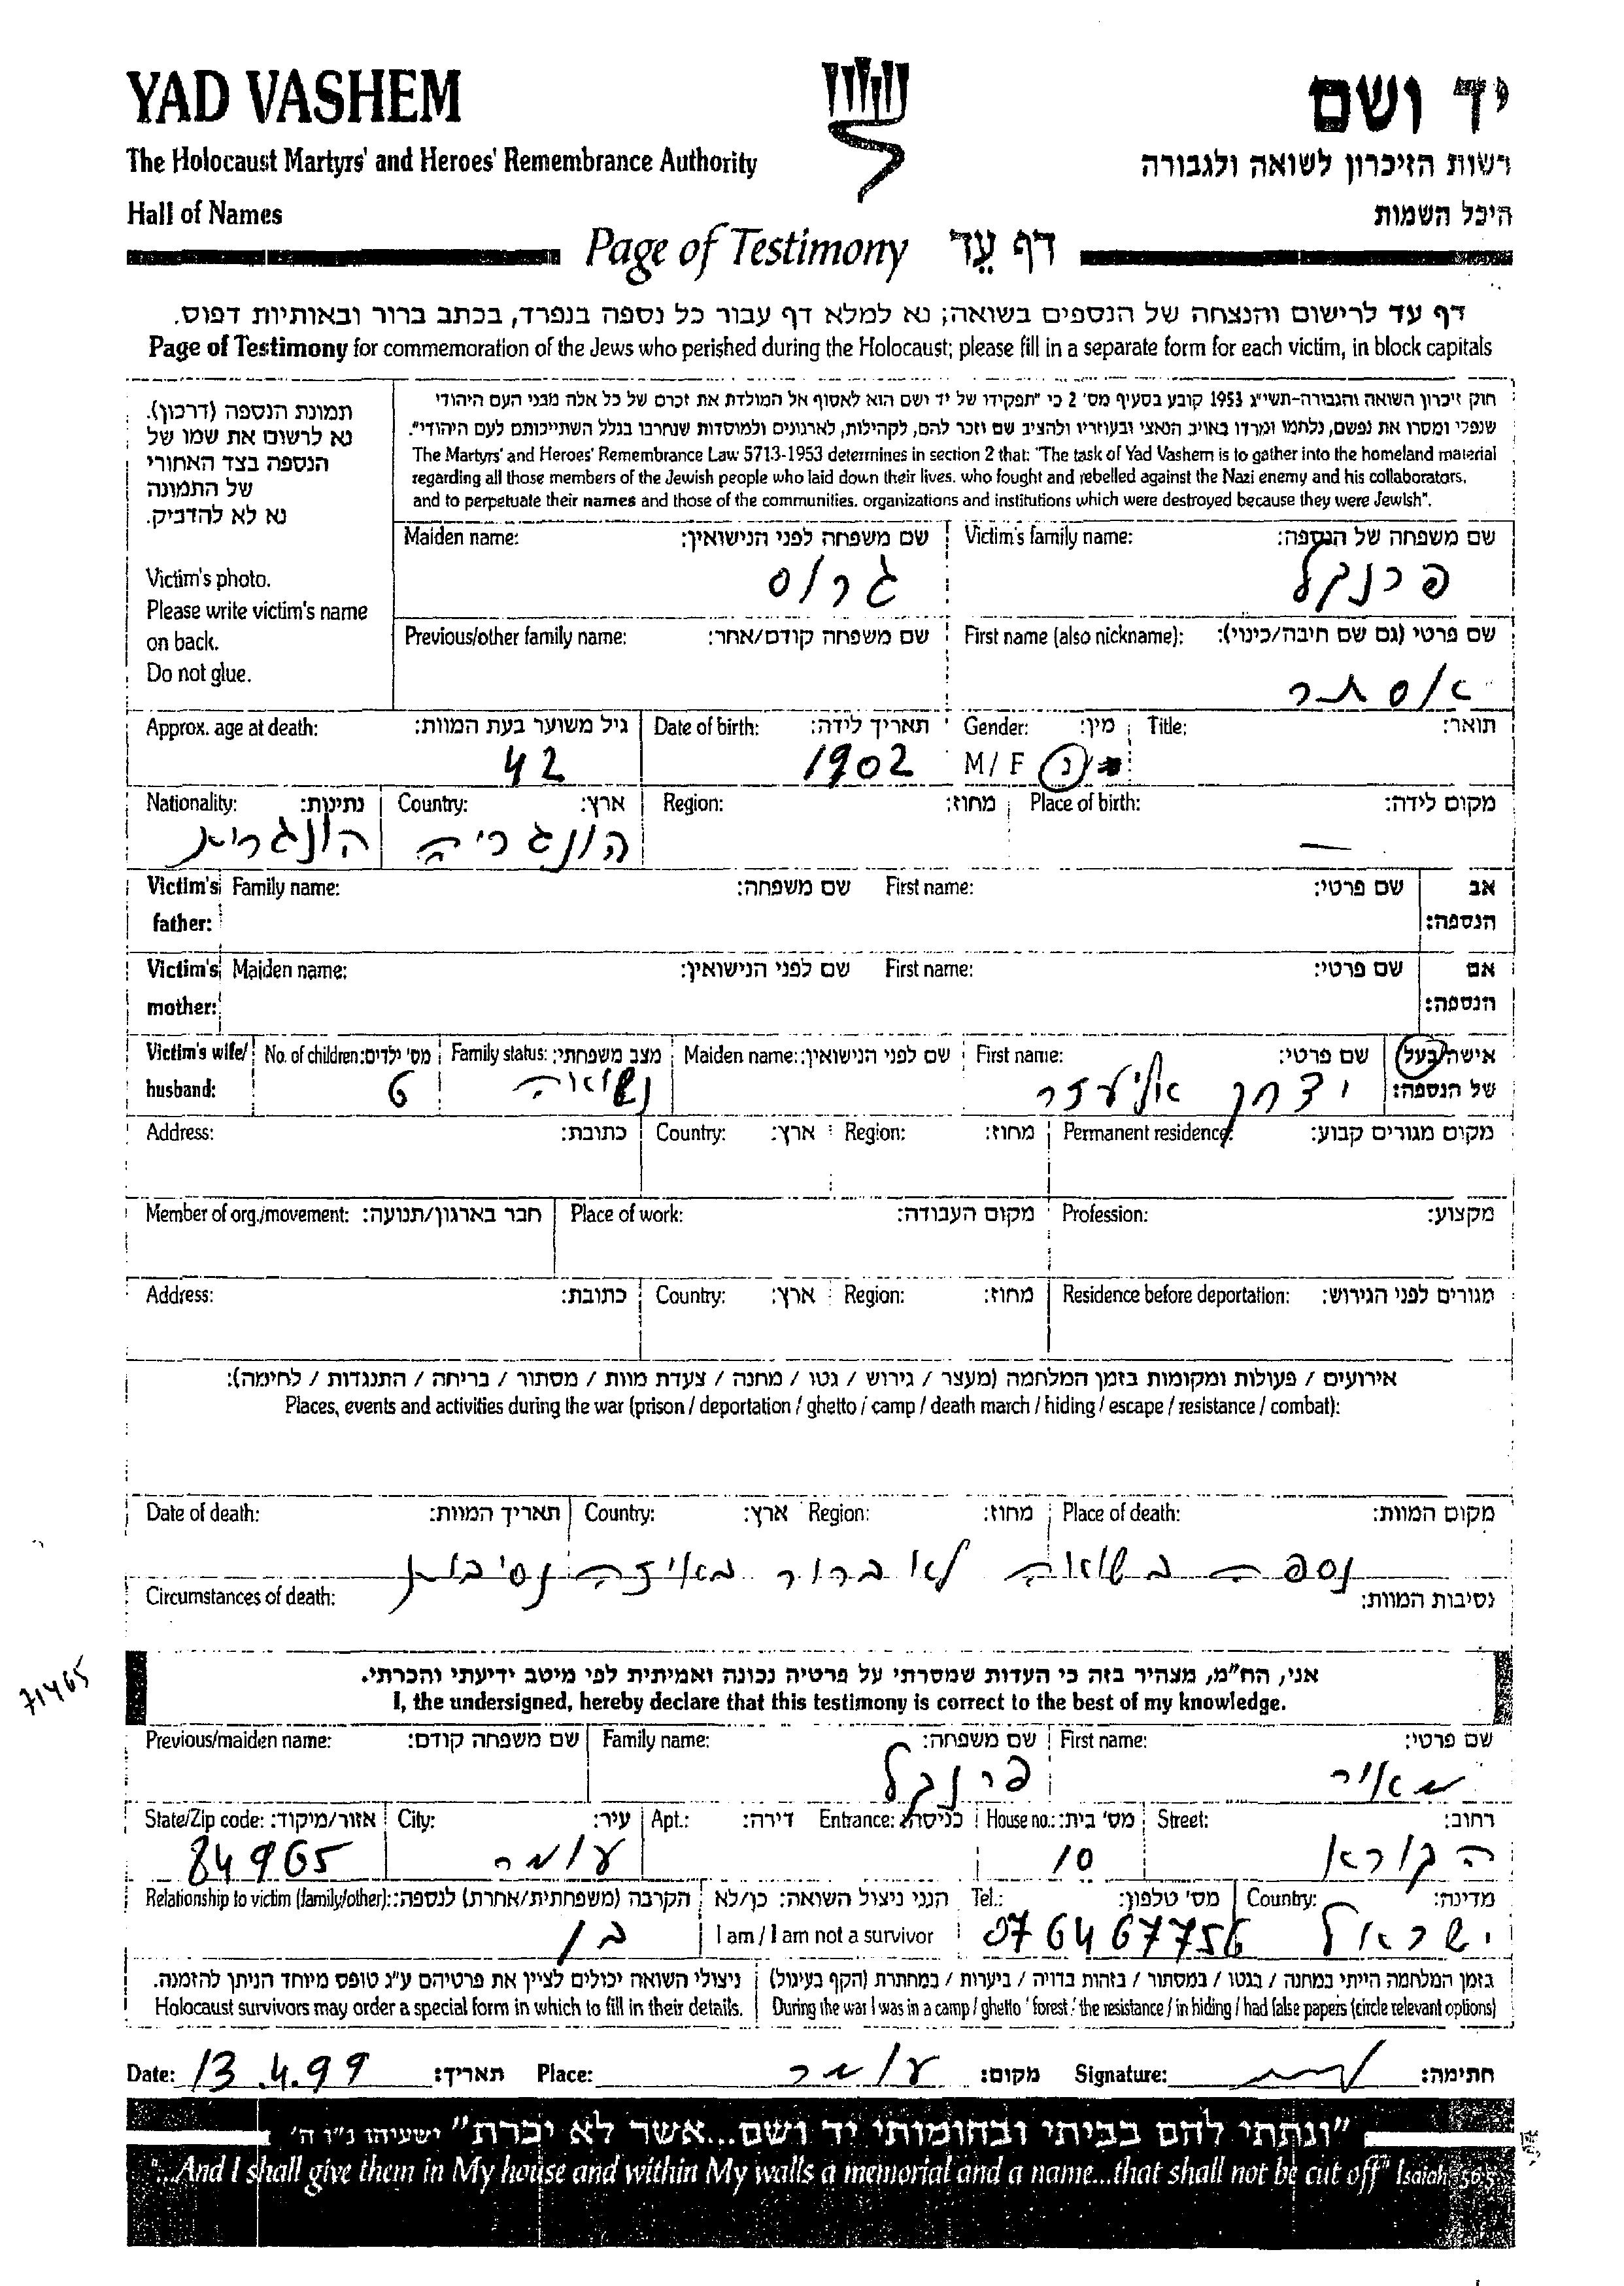 YAD VASHEM
יד ושם
The Holocaust Martyrs' and Heroes' Remembrance Authority
רשות הזיכרון לשואה ולגבורה
Hall of Names
היכל השמות
Page of Testimony דף עֵד
דף עד לרישום והנצחה של הנספים בשואה; נא למלא דף עבור כל נספה בנפרד, בכתב ברור ובאותיות דפוס.
Page of Testimony for commemoration of the Jews who perished during the Holocaust; please fill in a separate form for each victim, in block capitals
תמונת הנספה (דרכון).
נא לרשום את שמו של
הנספה בצד האחורי
של התמונה
נא לא להדביק.
Victim's photo.
Please write victim's name
on back.
Do not glue.
חוק זיכרון השואה והגבורה-תשי"ג 1953 קובע בסעיף מס' 2 כי "תפקידו של יד ושם הוא לאסוף אל המולדת את זכרם של כל אלה מבני העם היהודי
שנפלו ומסרו את נפשם, נלחמו ומרדו באויב הנאצי ובעוזריו ולהציב שם וזכר להם, לקהילות, לארגונים ולמוסדות שנחרבו בגלל השתייכותם לעם היהודי".
The Martyrs' and Heroes' Remembrance Law 5713-1953 determines in section 2 that: "The task of Yad Vashem is to gather into the homeland material
regarding all those members of the Jewish people who laid down their lives, who fought and rebelled against the Nazi enemy and his collaborators,
and to perpetuate their names and those of the communities, organizations and institutions which were destroyed because they were Jewish".
Victim's family name: שם משפחה של הנספה:
פרנקל
Maiden name: שם משפחה לפני הנישואין:
גרוס
First name (also nickname): שם פרטי (גם שם חיבה/כינוי):
אסתר
Previous/other family name: שם משפחה קודם/אחר:
Title: תואר:
Gender: מין:
M / F נ
Date of birth: תאריך לידה:
1902
Approx. age at death: גיל משוער בעת המוות:
42
Place of birth: מקום לידה:
—
Region: מחוז:
Country: ארץ:
הונגריה
Nationality: נתינות:
הונגרית
Victim's father: Family name: שם משפחה: First name: שם פרטי: אב הנספה:
Victim's mother: Maiden name: שם לפני הנישואין: First name: שם פרטי: אם הנספה:
Victim's wife/ husband: אישה/בעל של הנספה:
First name: שם פרטי:
יצחק אליעזר
Maiden name: שם לפני הנישואין:
Family status: מצב משפחתי:
נשואה
No. of children: מס' ילדים:
6
Permanent residence: מקום מגורים קבוע:
Region: מחוז: Country: ארץ: Address: כתובת:
Profession: מקצוע: Place of work: מקום העבודה: Member of org./movement: חבר בארגון/תנועה:
Residence before deportation: מגורים לפני הגירוש:
Region: מחוז: Country: ארץ: Address: כתובת:
אירועים / פעולות ומקומות בזמן המלחמה (מעצר / גירוש / גטו / מחנה / צעדת מוות / מסתור / בריחה / התנגדות / לחימה):
Places, events and activities during the war (prison / deportation / ghetto / camp / death march / hiding / escape / resistance / combat):
Place of death: מקום המוות: Region: מחוז: Country: ארץ: Date of death: תאריך המוות:
נספה בשואה לא ברור באיזה נסיבות
Circumstances of death: נסיבות המוות:
71465
אני, הח"מ, מצהיר בזה כי העדות שמסרתי על פרטיה נכונה ואמיתית לפי מיטב ידיעתי והכרתי.
I, the undersigned, hereby declare that this testimony is correct to the best of my knowledge.
First name: שם פרטי:
מאיר
Family name: שם משפחה:
פרנקל
Previous/maiden name: שם משפחה קודם:
Street: רחוב:
הקורא
House no.: מס' בית:
10
Entrance: כניסה: Apt.: דירה:
City: עיר:
עומר
State/Zip code: אזור/מיקוד:
84965
Country: מדינה:
ישראל
Tel.: מס' טלפון:
076467756
הנני ניצול השואה: כן/לא
I am / I am not a survivor
Relationship to victim (family/other): הקרבה (משפחתית/אחרת) לנספה:
בן
בזמן המלחמה הייתי במחנה / בגטו / במסתור / בזהות בדויה / ביערות / במחתרת (הקף בעיגול)
During the war I was in a camp / ghetto / forest / the resistance / in hiding / had false papers (circle relevant options)
ניצולי השואה יכולים לציין את פרטיהם ע"ג טופס מיוחד הניתן להזמנה.
Holocaust survivors may order a special form in which to fill in their details.
Date: 13.4.99 תאריך: Place: עומר מקום: Signature: חתימה:
"ונתתי להם בביתי ובחומותי יד ושם...אשר לא יכרת" ישעיהו נ"ו ה'
"...And I shall give them in My house and within My walls a memorial and a name...that shall not be cut off" Isaiah 56:5